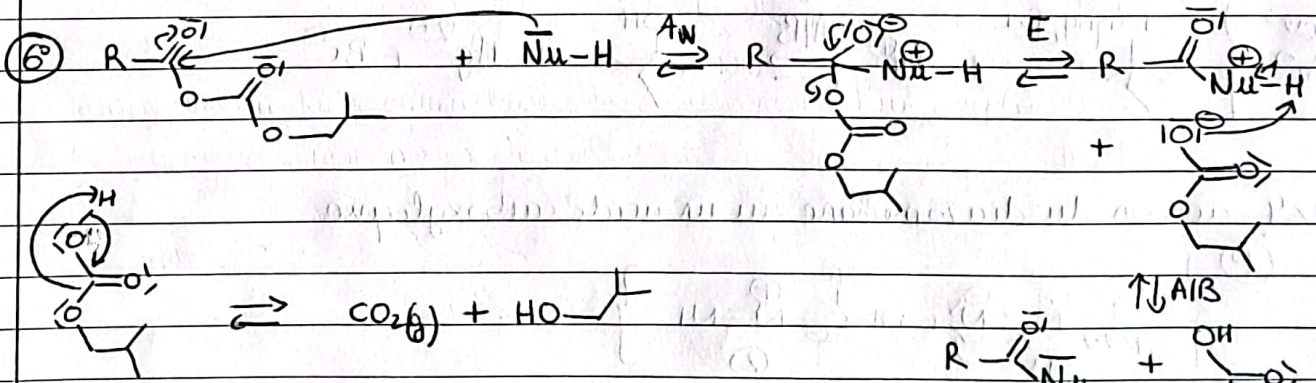 6° R O O O O + Nu-H A_N ⇌ R O⊖ ⊕Nu-H O O O E ⇌ R O ⊕Nu-H
+ O⊖ O O
H O O O ⇌ CO2(g) + HO
⇅ A/B
R O Nu + OH O